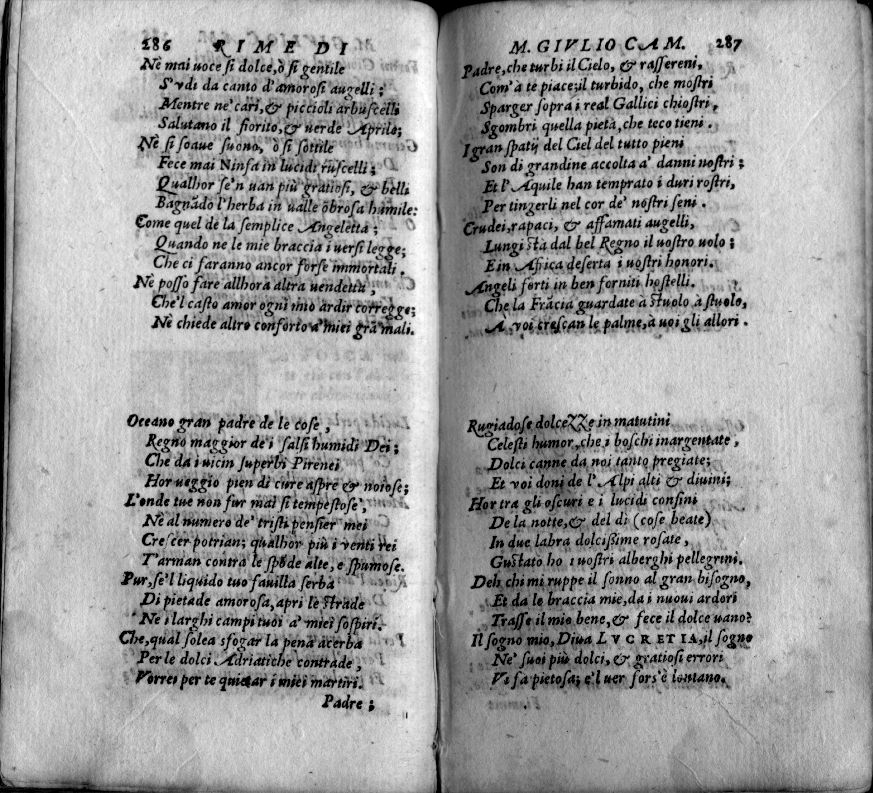 286 RIME DI
Nè mai uoce ſi dolce, ò ſi gentile
S'vdi da canto d'amoroſi augelli;
Mentre ne' cari, & piccioli arbuſcelli
Salutano il fiorito, & uerde Aprile;
Nè ſi ſoaue ſuono, ò ſi ſottile
Fece mai Ninfa in lucidi ruſcelli;
Qualhor ſe'n uan più gratioſi, & belli
Bagnãdo l'herba in ualle õbroſa humile:
Come quel de la ſemplice Angeletta;
Quando ne le mie braccia i uerſi legge;
Che ci faranno ancor forſe immortali.
Nè poſſo fare allhora altra uendetta,
Che'l caſto amor ogni mio ardir corregge;
Nè chiede altro conforto a' miei grã mali.
Oceano gran padre de le coſe,
Regno maggior de i ſalſi humidi Dei;
Che da i uicin ſuperbi Pirenei
Hor ueggio pien di cure aſpre & noioſe;
L'onde tue non fur mai ſi tempeſtoſe,
Nè al numero de' triſti penſier mei
Creſcer potrian; qualhor più i venti rei
T'arman contra le ſpõde alte, e ſpumoſe.
Pur, ſe'l liquido tuo fauilla ſerba
Di pietade amoroſa, apri le ſtrade
Ne i larghi campi tuoi a' miei ſoſpiri.
Che, qual ſolea sfogar la pena acerba
Per le dolci Adriatiche contrade,
Vorrei per te quietar i miei martiri.
Padre;
M. GIVLIO CAM. 287
Padre, che turbi il Cielo, & raſſereni,
Com'à te piace; il turbido, che moſtri
Sparger ſopra i real Gallici chioſtri,
Sgombri quella pietà, che teco tieni.
I gran ſpatij del Ciel del tutto pieni
Son di grandine accolta a' danni noſtri;
Et l'Aquile han temprato i duri roſtri,
Per tingerli nel cor de' noſtri ſeni.
Crudei, rapaci, & affamati augelli,
Lungi ſta dal bel Regno il uoſtro uolo;
E in Africa deſerta i uoſtri honori.
Angeli forti in ben forniti hoſtelli.
Che la Frãcia guardate à ſtuolo à ſtuolo,
A voi creſcan le palme, à uoi gli allori.
Rugiadoſe dolcezze in matutini
Celeſti humor, che i boſchi inargentate,
Dolci canne da noi tanto pregiate;
Et voi doni de l'Alpi alti & diuini;
Hor tra gli oſcuri e i lucidi confini
De la notte, & del di (coſe beate)
In due labra dolciſſime roſate,
Guſtato ho i uoſtri alberghi pellegrini.
Deh chi mi ruppe il ſonno al gran biſogno,
Et da le braccia mie, da i nuoui ardori
Traſſe il mio bene, & fece il dolce uano?
Il ſogno mio, Diua LVCRETIA, il ſogno
Ne' ſuoi più dolci, & gratioſi errori
Vi fa pietoſa; e'l uer forſ'è lontano.